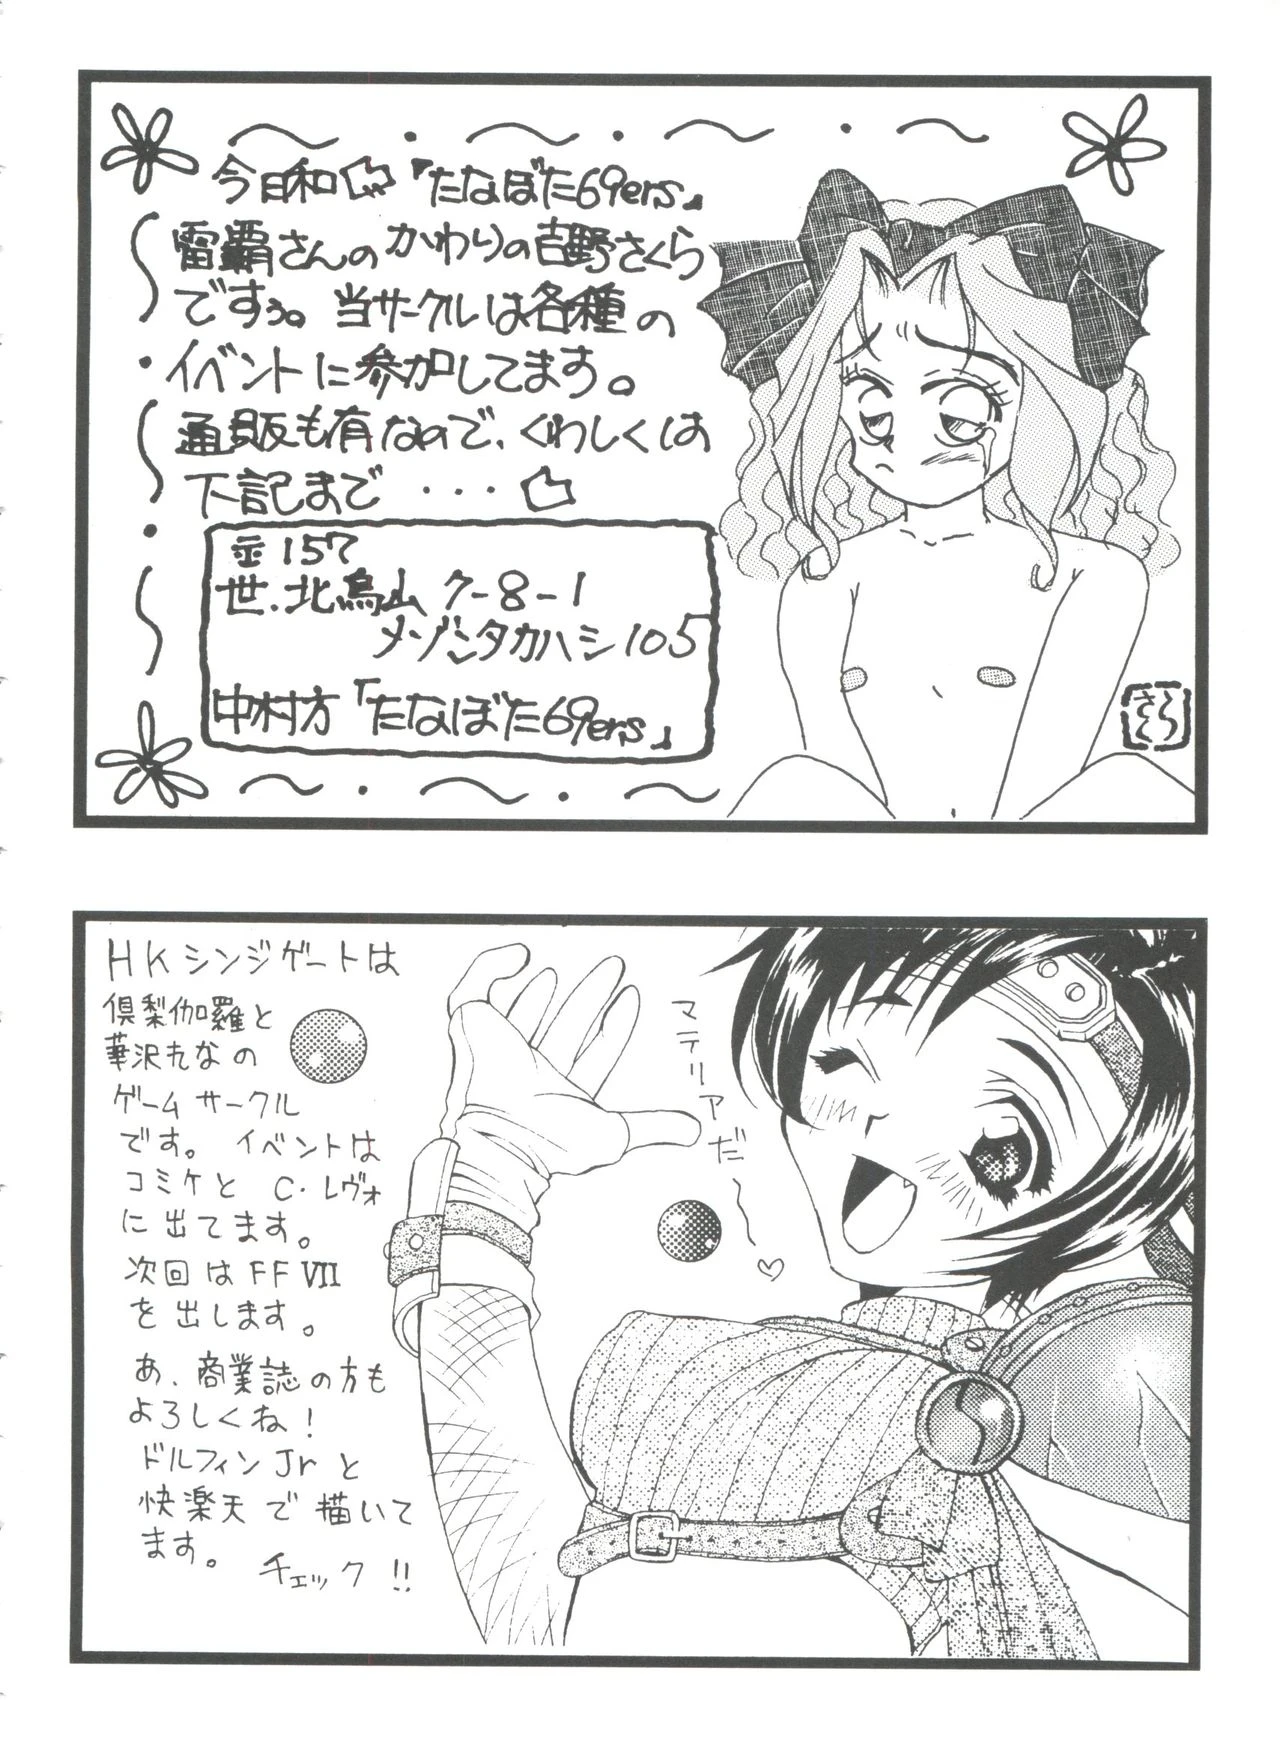 今日和 『たなぼた69ers』
雷覇さんのかわりの吉野さくら
ですぅ。当サークルは各種の
イベントに参加してます。
通販も有なので、くわしくは
下記まで ・・・
〒157
世.北烏山 7-8-1
メゾンタカハシ105
中村方「たなぼた69ers」
さくら
HKシンジゲートは
倶梨伽羅と
華沢れなの
ゲームサークル
です。 イベントは
コミケと C.レヴォ
に出てます。
次回はFFⅦ
を出します。
あ、商業誌の方も
よろしくね!
ドルフィンJrと
快楽天で描いて
ます。
チェック!!
マテリアだ〜♡